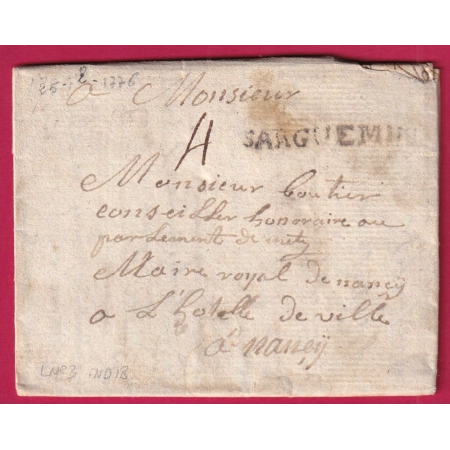 25-2-1776
a Monsieur
4 SARGUEMIN
Monsieur boutier
conseiller honoraire au
parlement de metz
Maire royal de nancÿ
a L'hotelle de ville
a nancÿ
LN°3 IND 18